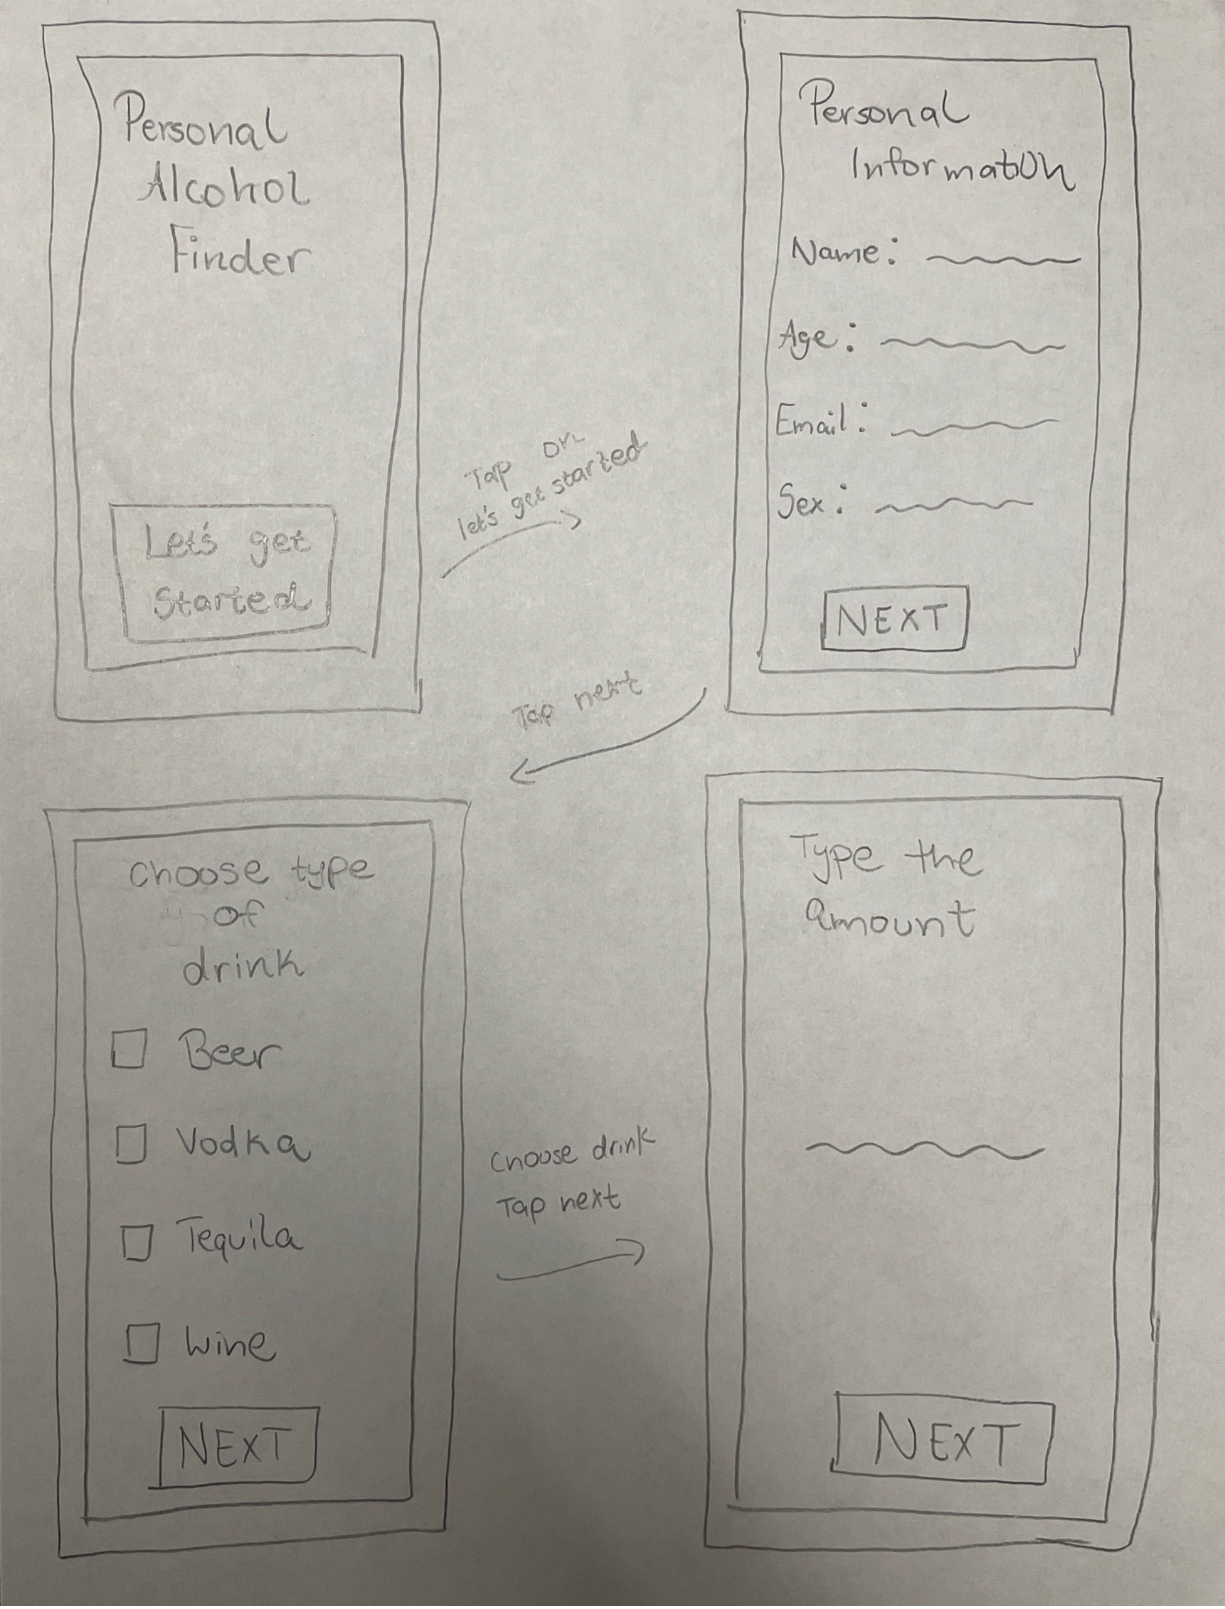 Personal
Alcohol
Finder
Let's get
Started
Tap on
let's get started
Personal
Information
Name:
Age:
Email:
Sex:
NEXT
Tap next
choose type
of
drink
Beer
Vodka
Tequila
Wine
NEXT
Choose drink
Tap next
Type the
amount
NEXT